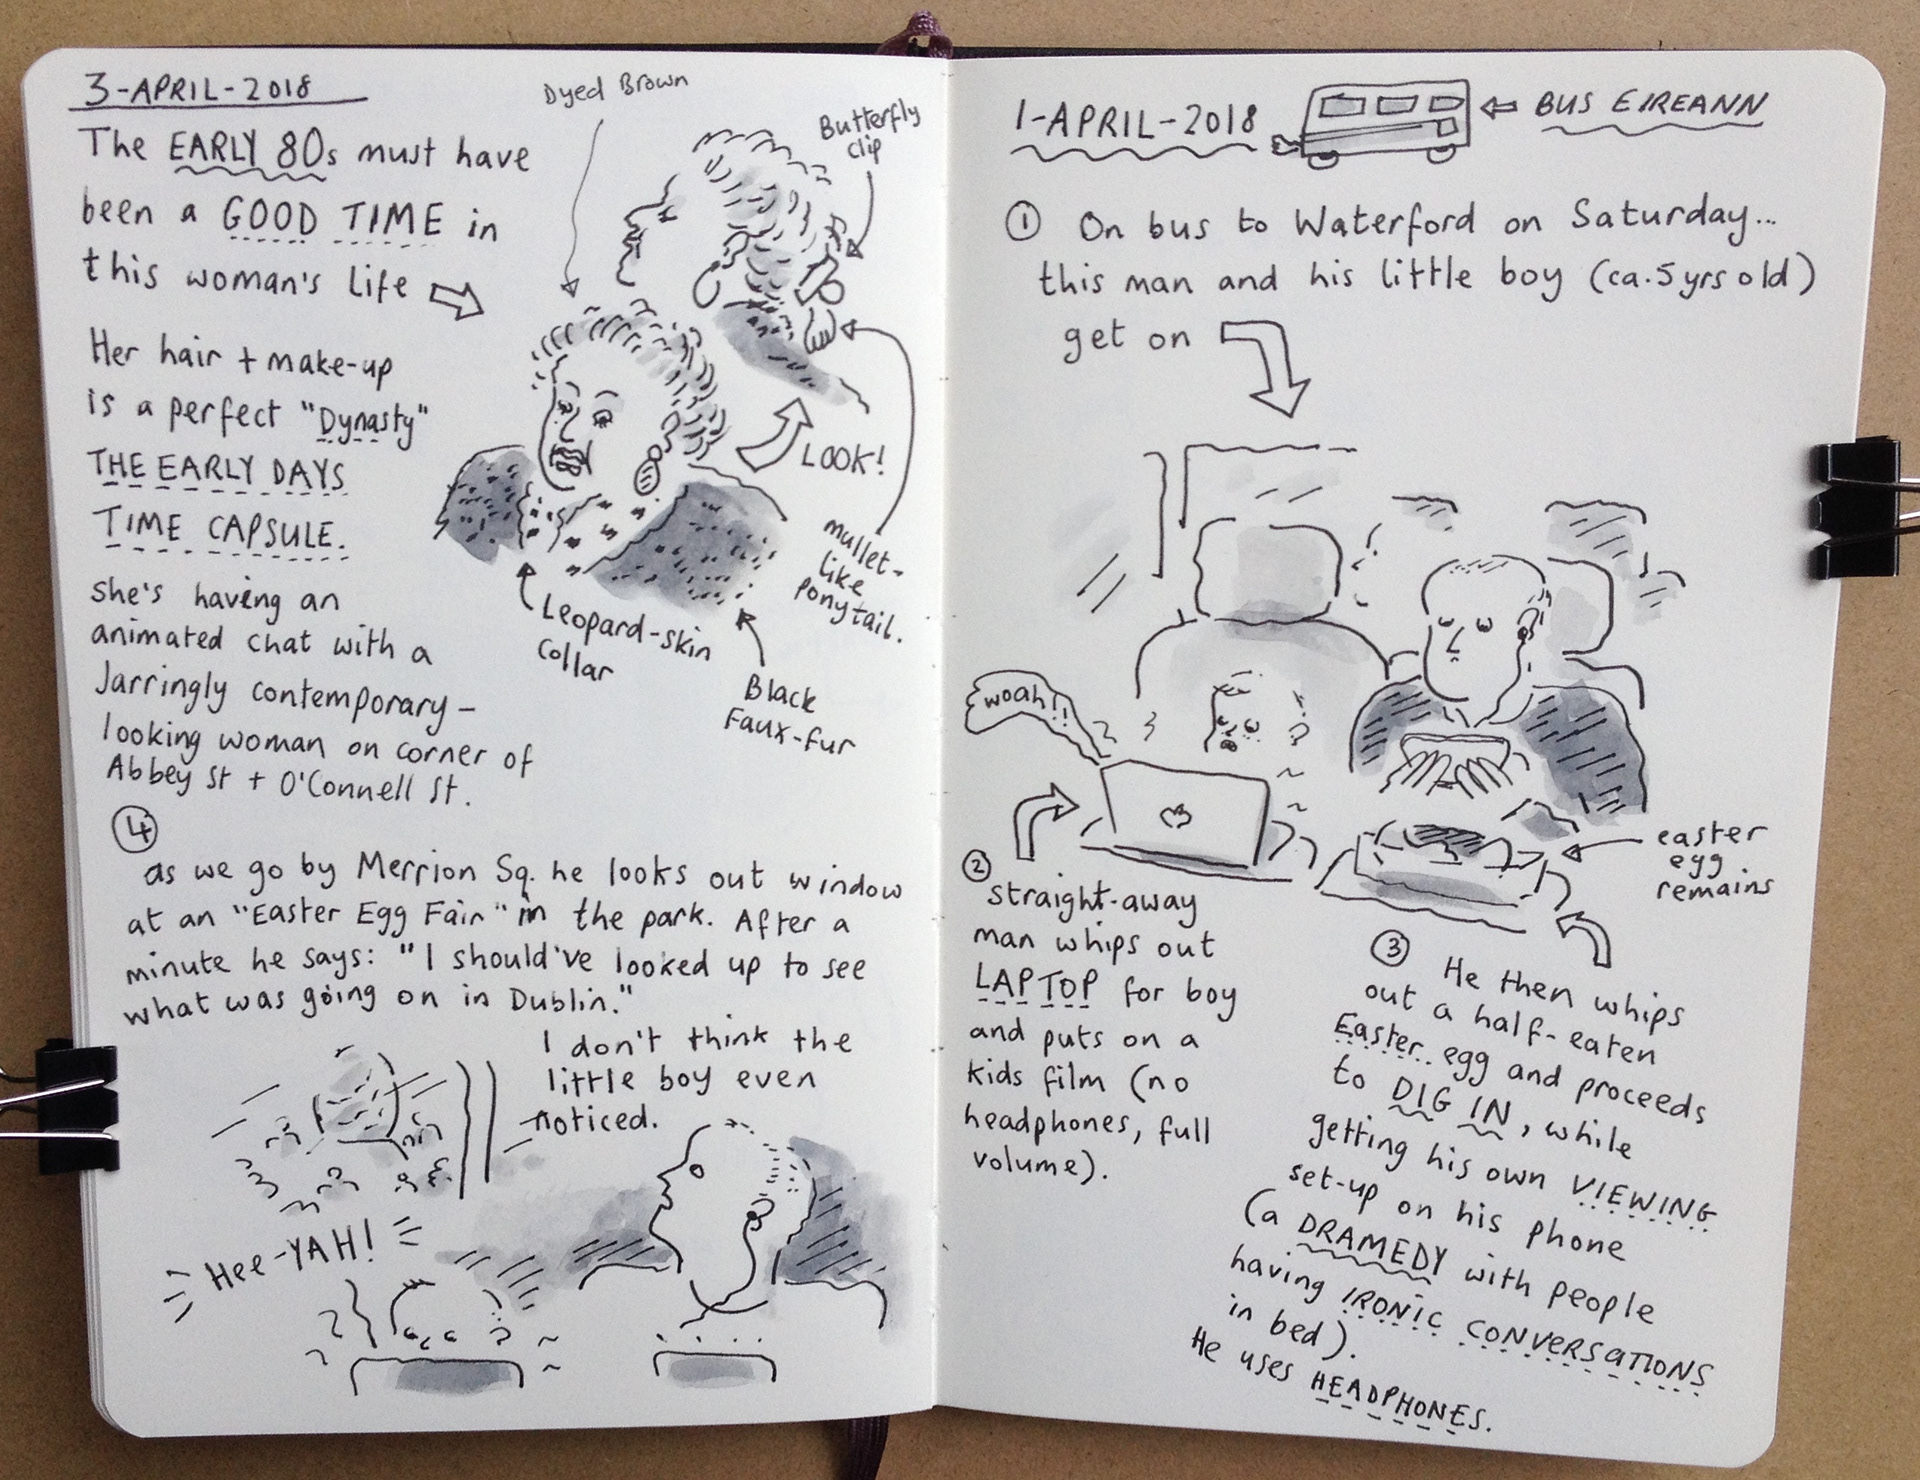 3-APRIL-2018
The EARLY 80s must have
been a GOOD TIME in
this woman's life
Her hair + make-up
is a perfect "Dynasty"
THE EARLY DAYS
TIME CAPSULE.
She's having an
animated chat with a
Jarringly contemporary-
looking woman on corner of
Abbey St + O'Connell St.
Dyed Brown
Butterfly
clip
LOOK!
mullet-
like
ponytail.
Leopard-skin
collar
Black
Faux-fur
4
as we go by Merrion Sq. he looks out window
at an "Easter Egg Fair" in the park. After a
minute he says: "I should've looked up to see
what was going on in Dublin."
I don't think the
little boy even
noticed.
Hee-YAH!
1-APRIL-2018
BUS EIREANN
1 On bus to Waterford on Saturday...
this man and his little boy (ca. 5 yrs old)
get on
woah!!
easter
egg
remains
2
straight-away
man whips out
LAPTOP for boy
and puts on a
kids film (no
headphones, full
volume).
3 He then whips
out a half-eaten
Easter egg and proceeds
to DIG IN, while
getting his own VIEWING
set-up on his phone
(a DRAMEDY with people
having IRONIC CONVERSATIONS
in bed).
He uses HEADPHONES.